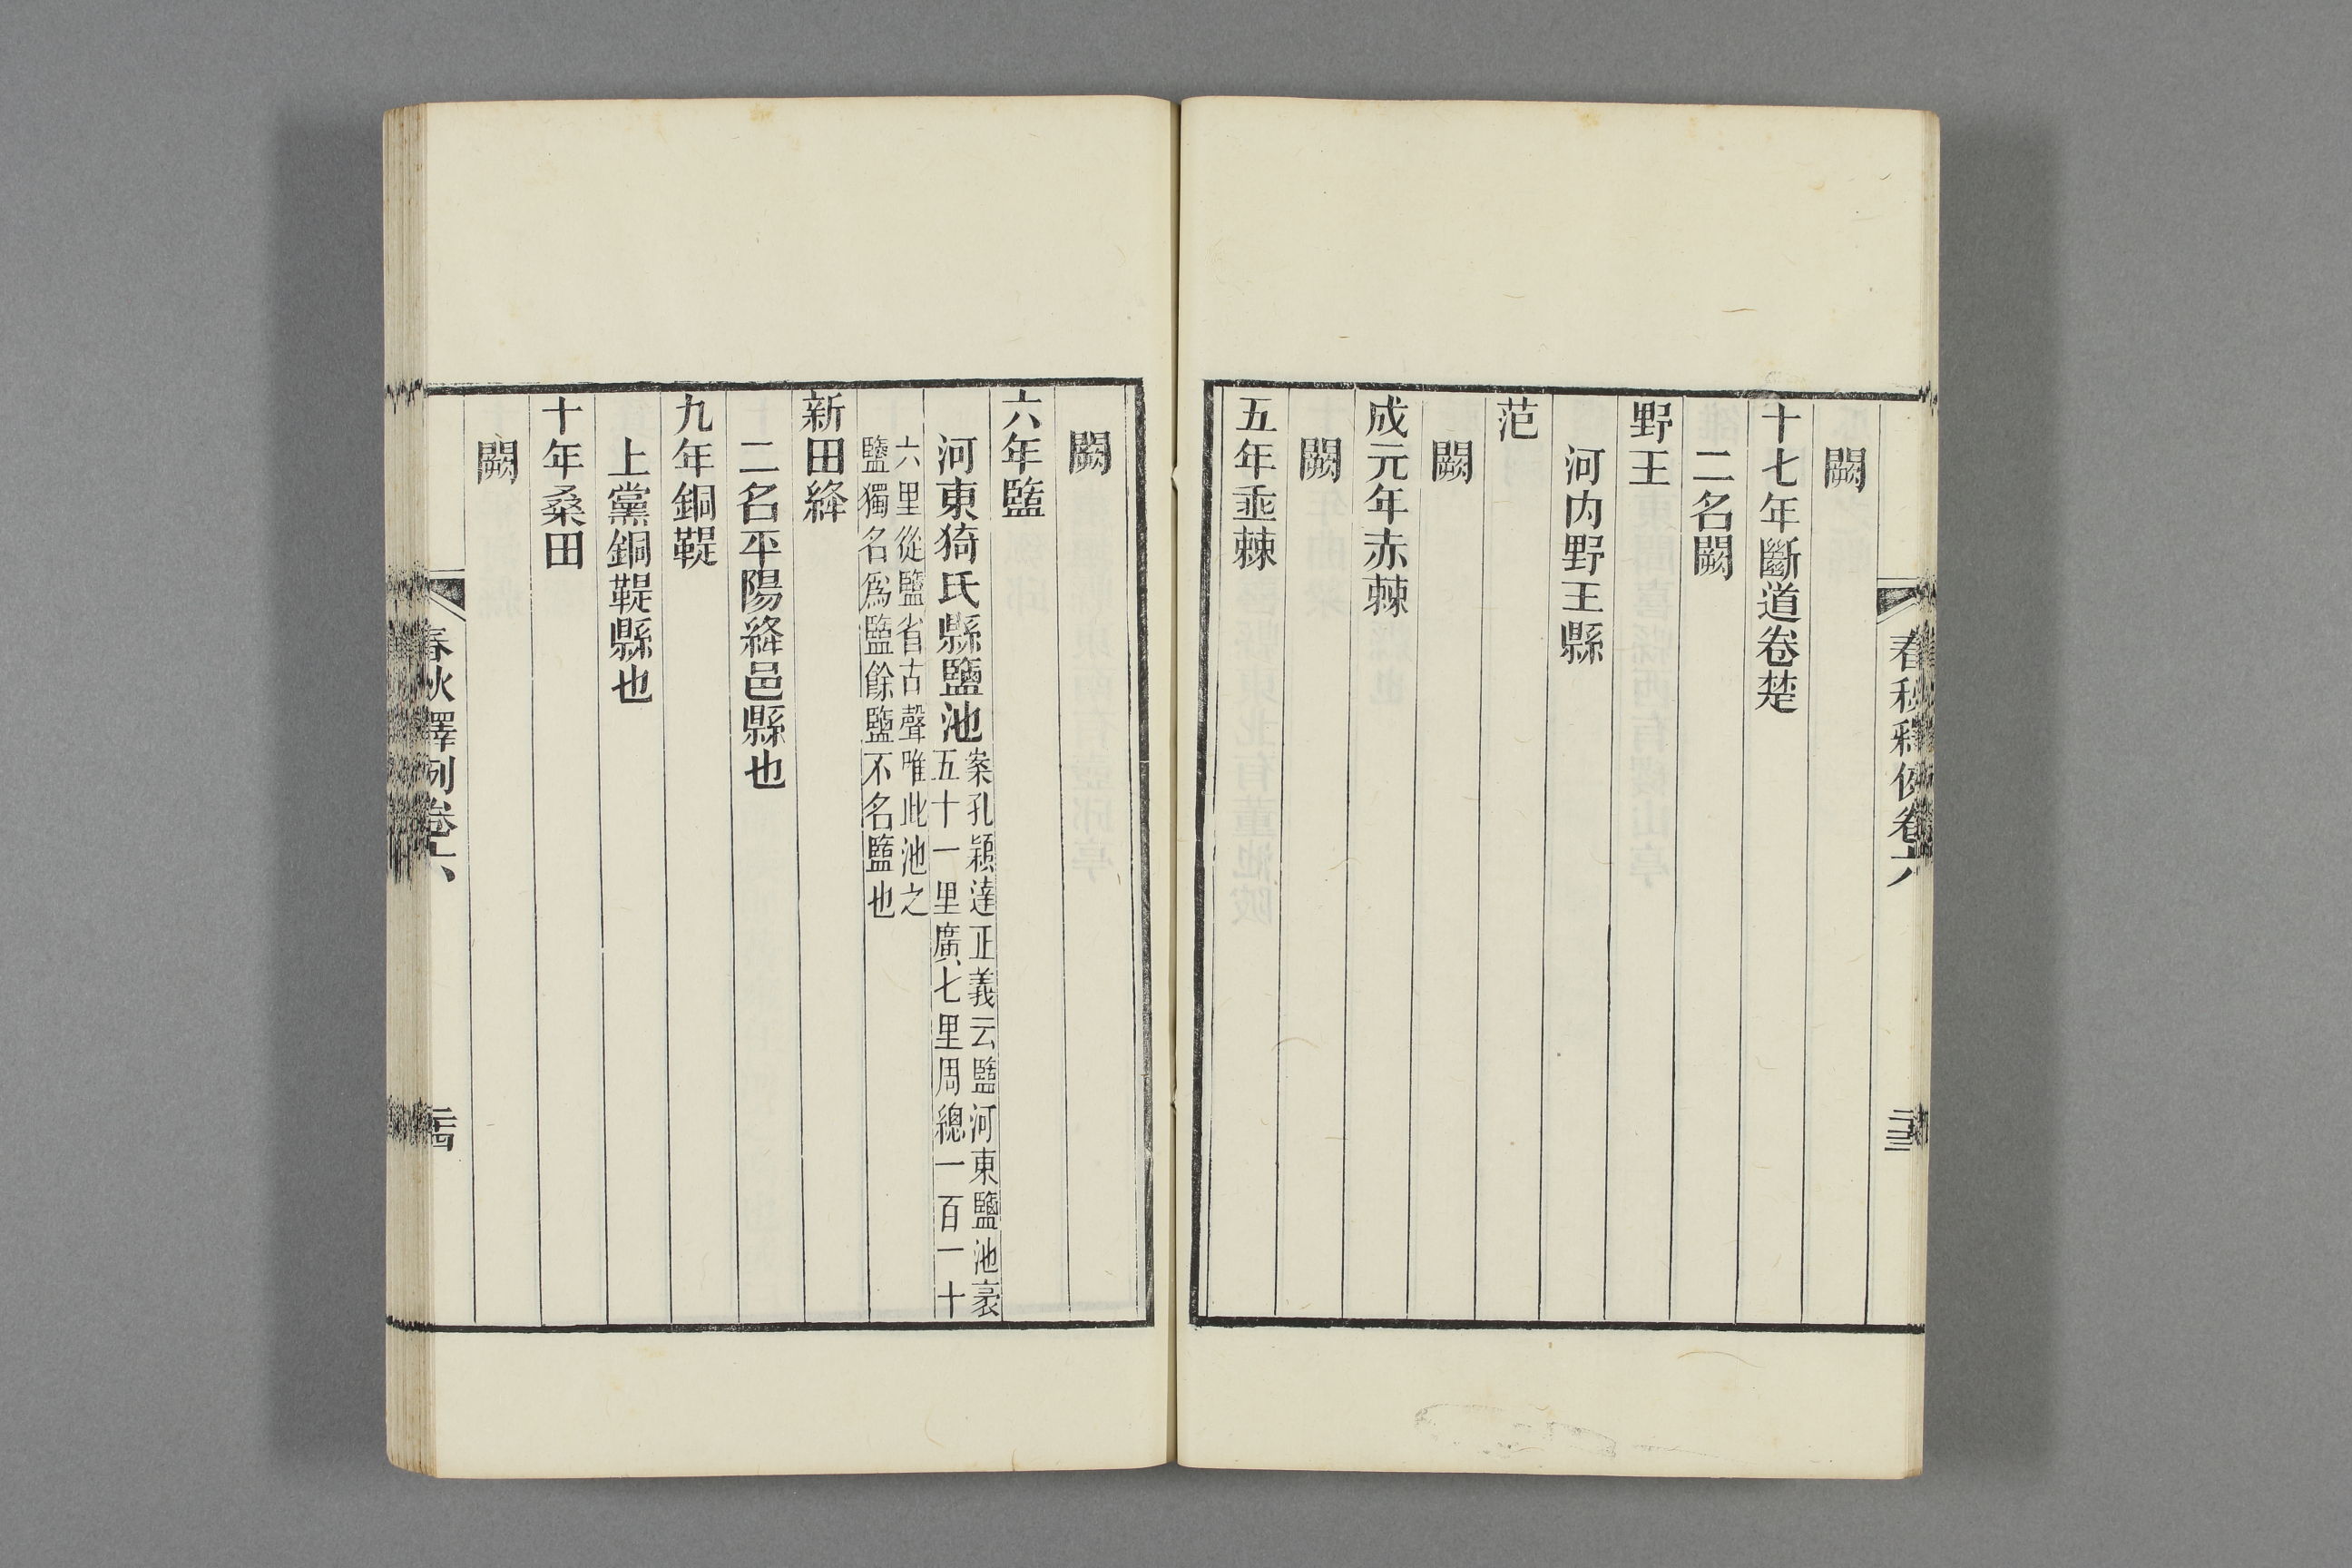 春秋釋例卷六
二十三
闕
十七年斷道卷楚
二名闕
野王
河内野王縣
范
闕
成元年赤棘
闕
五年垂棘
闕
六年盬
河東猗氏縣鹽池
案孔穎達正義云盬河東鹽池袤
五十一里廣七里周總一百一十
六里從鹽省古聲唯此池之
鹽獨名爲盬餘鹽不名盬也
新田絳
二名平陽絳邑縣也
九年銅鞮
上黨銅鞮縣也
十年桑田
闕
春秋釋例卷六
二十四